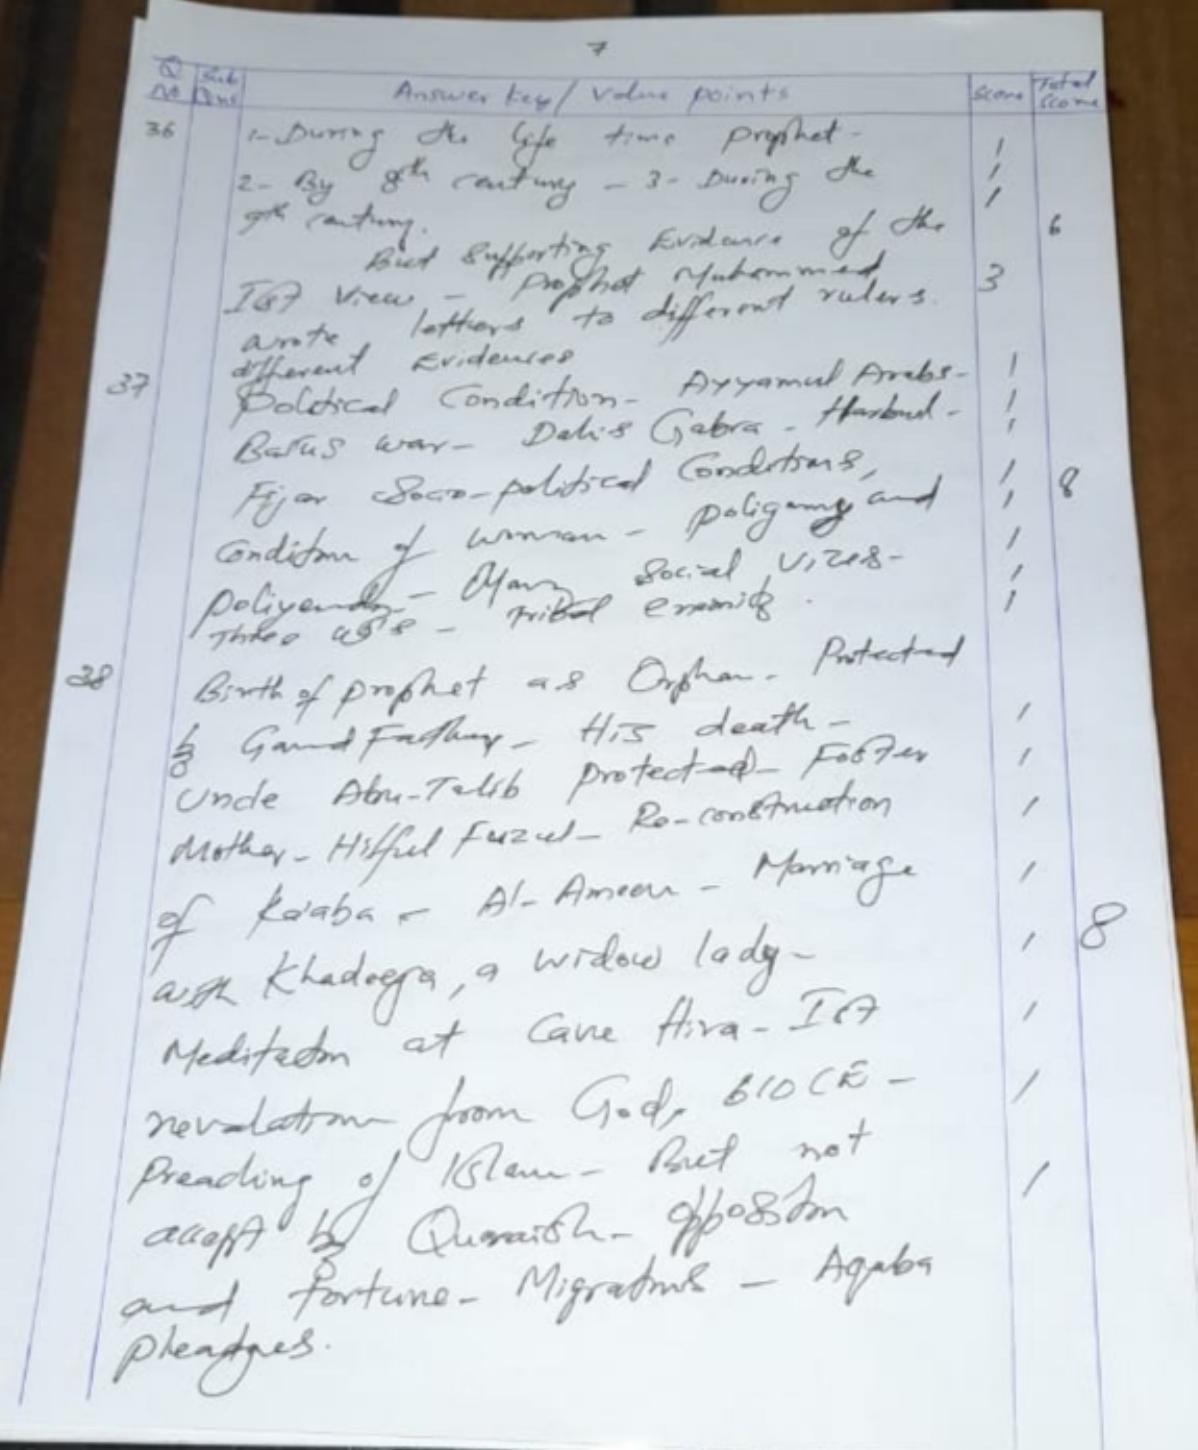 7
Q No Sub Qns Answer key / Value points Score Total Score
36 1- During the life time prophet - 1
2- By 8th century - 3- During the 1
9th century. 1 6
But supporting Evidence of the
Ist View - Prophet Muhammed 3
wrote letters to different rulers.
different Evidences
37 Political Condition - Ayyamul Arabs - 1
Basus war - Dahis Gabra - Harbul - 1
Fijar Socio-political Conditions, 1
Condition of woman - poligamy and 1 8
poliyandry - Many Social Vices - 1
Three - Tribal enimity. 1
38 Birth of prophet as Orphan - Protected
by Grand Father - His death - 1
Uncle Abu-Talib protected - Foster 1
Mother - Hilful Fuzul - Re-construction 1
of Ka'aba - Al-Ameen - Marriage 1
with Khadeeja, a widow lady - 1 8
Meditation at Cave Hira - Ist 1
revalation from God, 610 CE - 1
Preaching of Islam - But not 1
accept by Quraish - oppostion
and fortune - Migrations - Aqaba
pleadges.